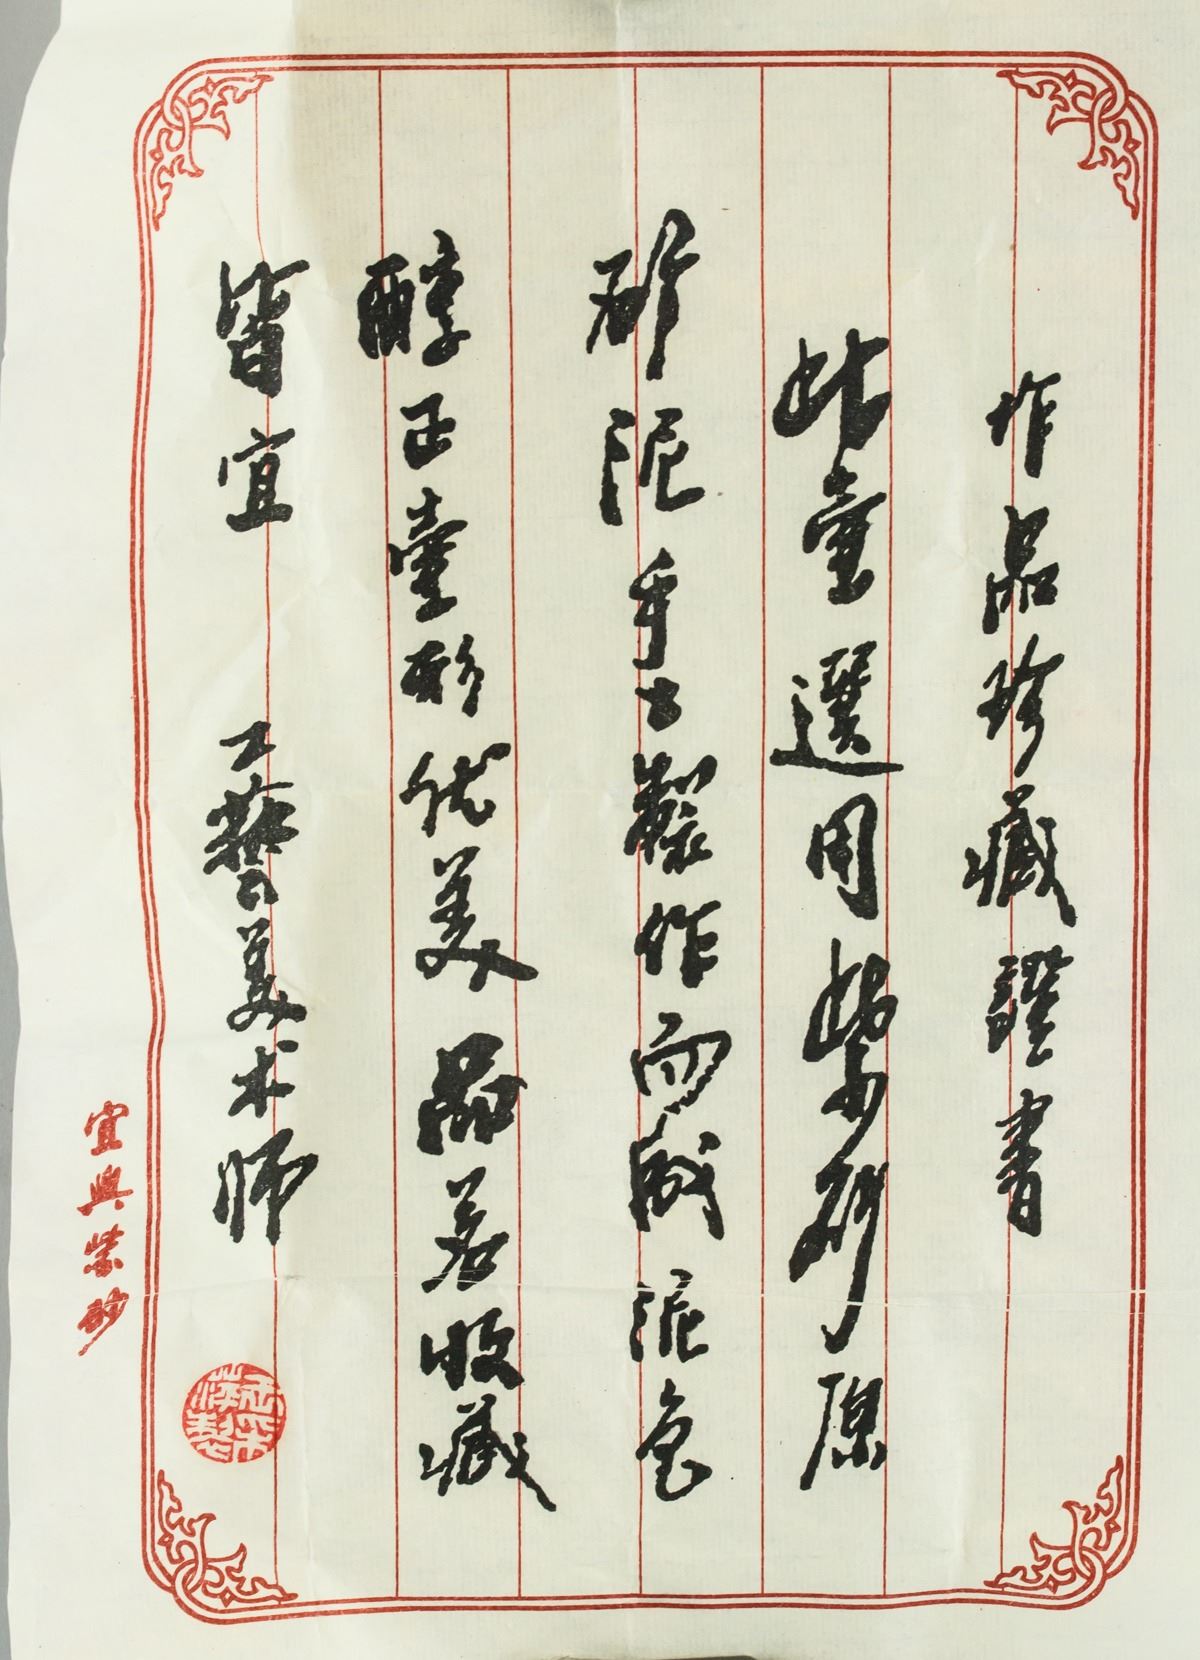 作品珍藏證書
此壷選用紫砂原
矿泥手工製作而成泥色
醇正壷形优美品茗收藏
皆宜 工藝美术师
宜興紫砂